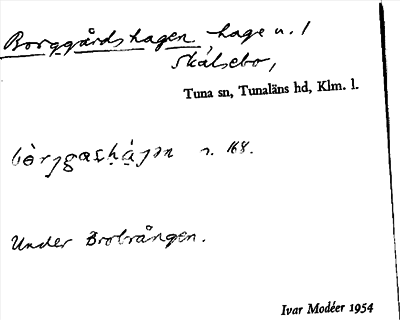 Borggårdshagen hage u. l
Skälsebo,
Tuna sn, Tunaläns hd, Klm. l.
s. 168.
Under Brobrången.
Ivar Modéer 1954